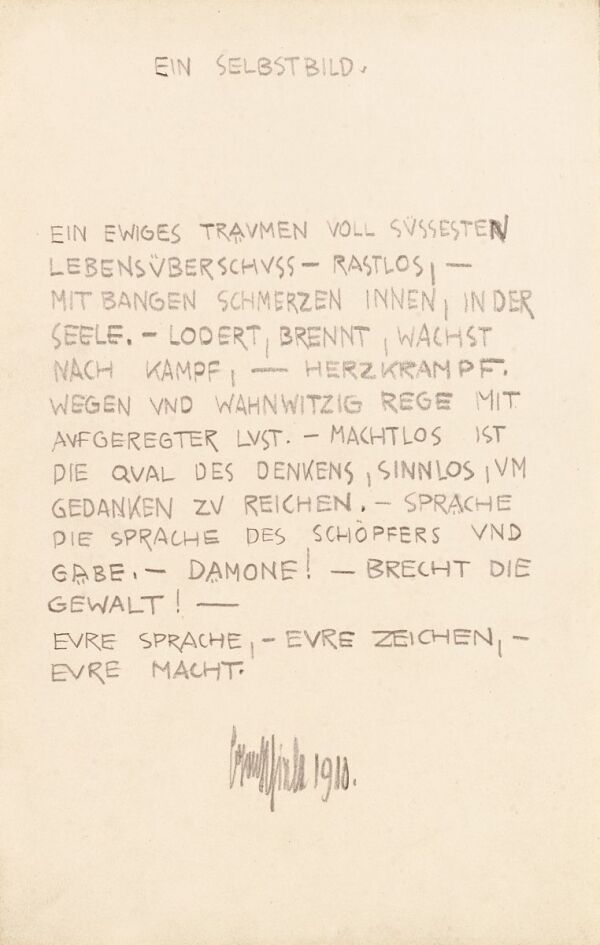 EIN SELBSTBILD.
EIN EWIGES TRÄVMEN VOLL SÜSSESTEN
LEBENSÜBERSCHVSS – RASTLOS, —
MIT BANGEN SCHMERZEN INNEN, IN DER
SEELE. – LODERT, BRENNT, WÄCHST
NACH KAMPF, — HERZKRAMPF.
WEGEN VND WAHNWITZIG REGE MIT
AVFGEREGTER LVST. – MACHTLOS IST
DIE QVAL DES DENKENS, SINNLOS, VM
GEDANKEN ZV REICHEN. – SPRÄCHE
DIE SPRACHE DES SCHÖPFERS VND
GÄBE. – DÄMONE! – BRECHT DIE
GEWALT! —
EVRE SPRACHE, – EVRE ZEICHEN, –
EVRE MACHT.
Egon Schiele 1910.